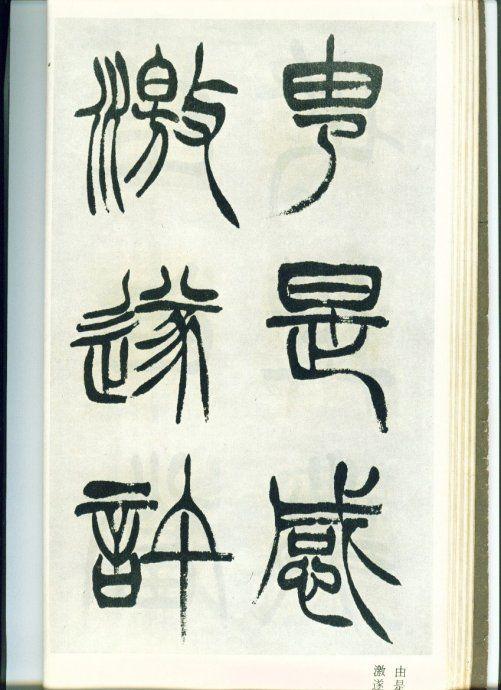 由是感
激遂許
由是
激遂